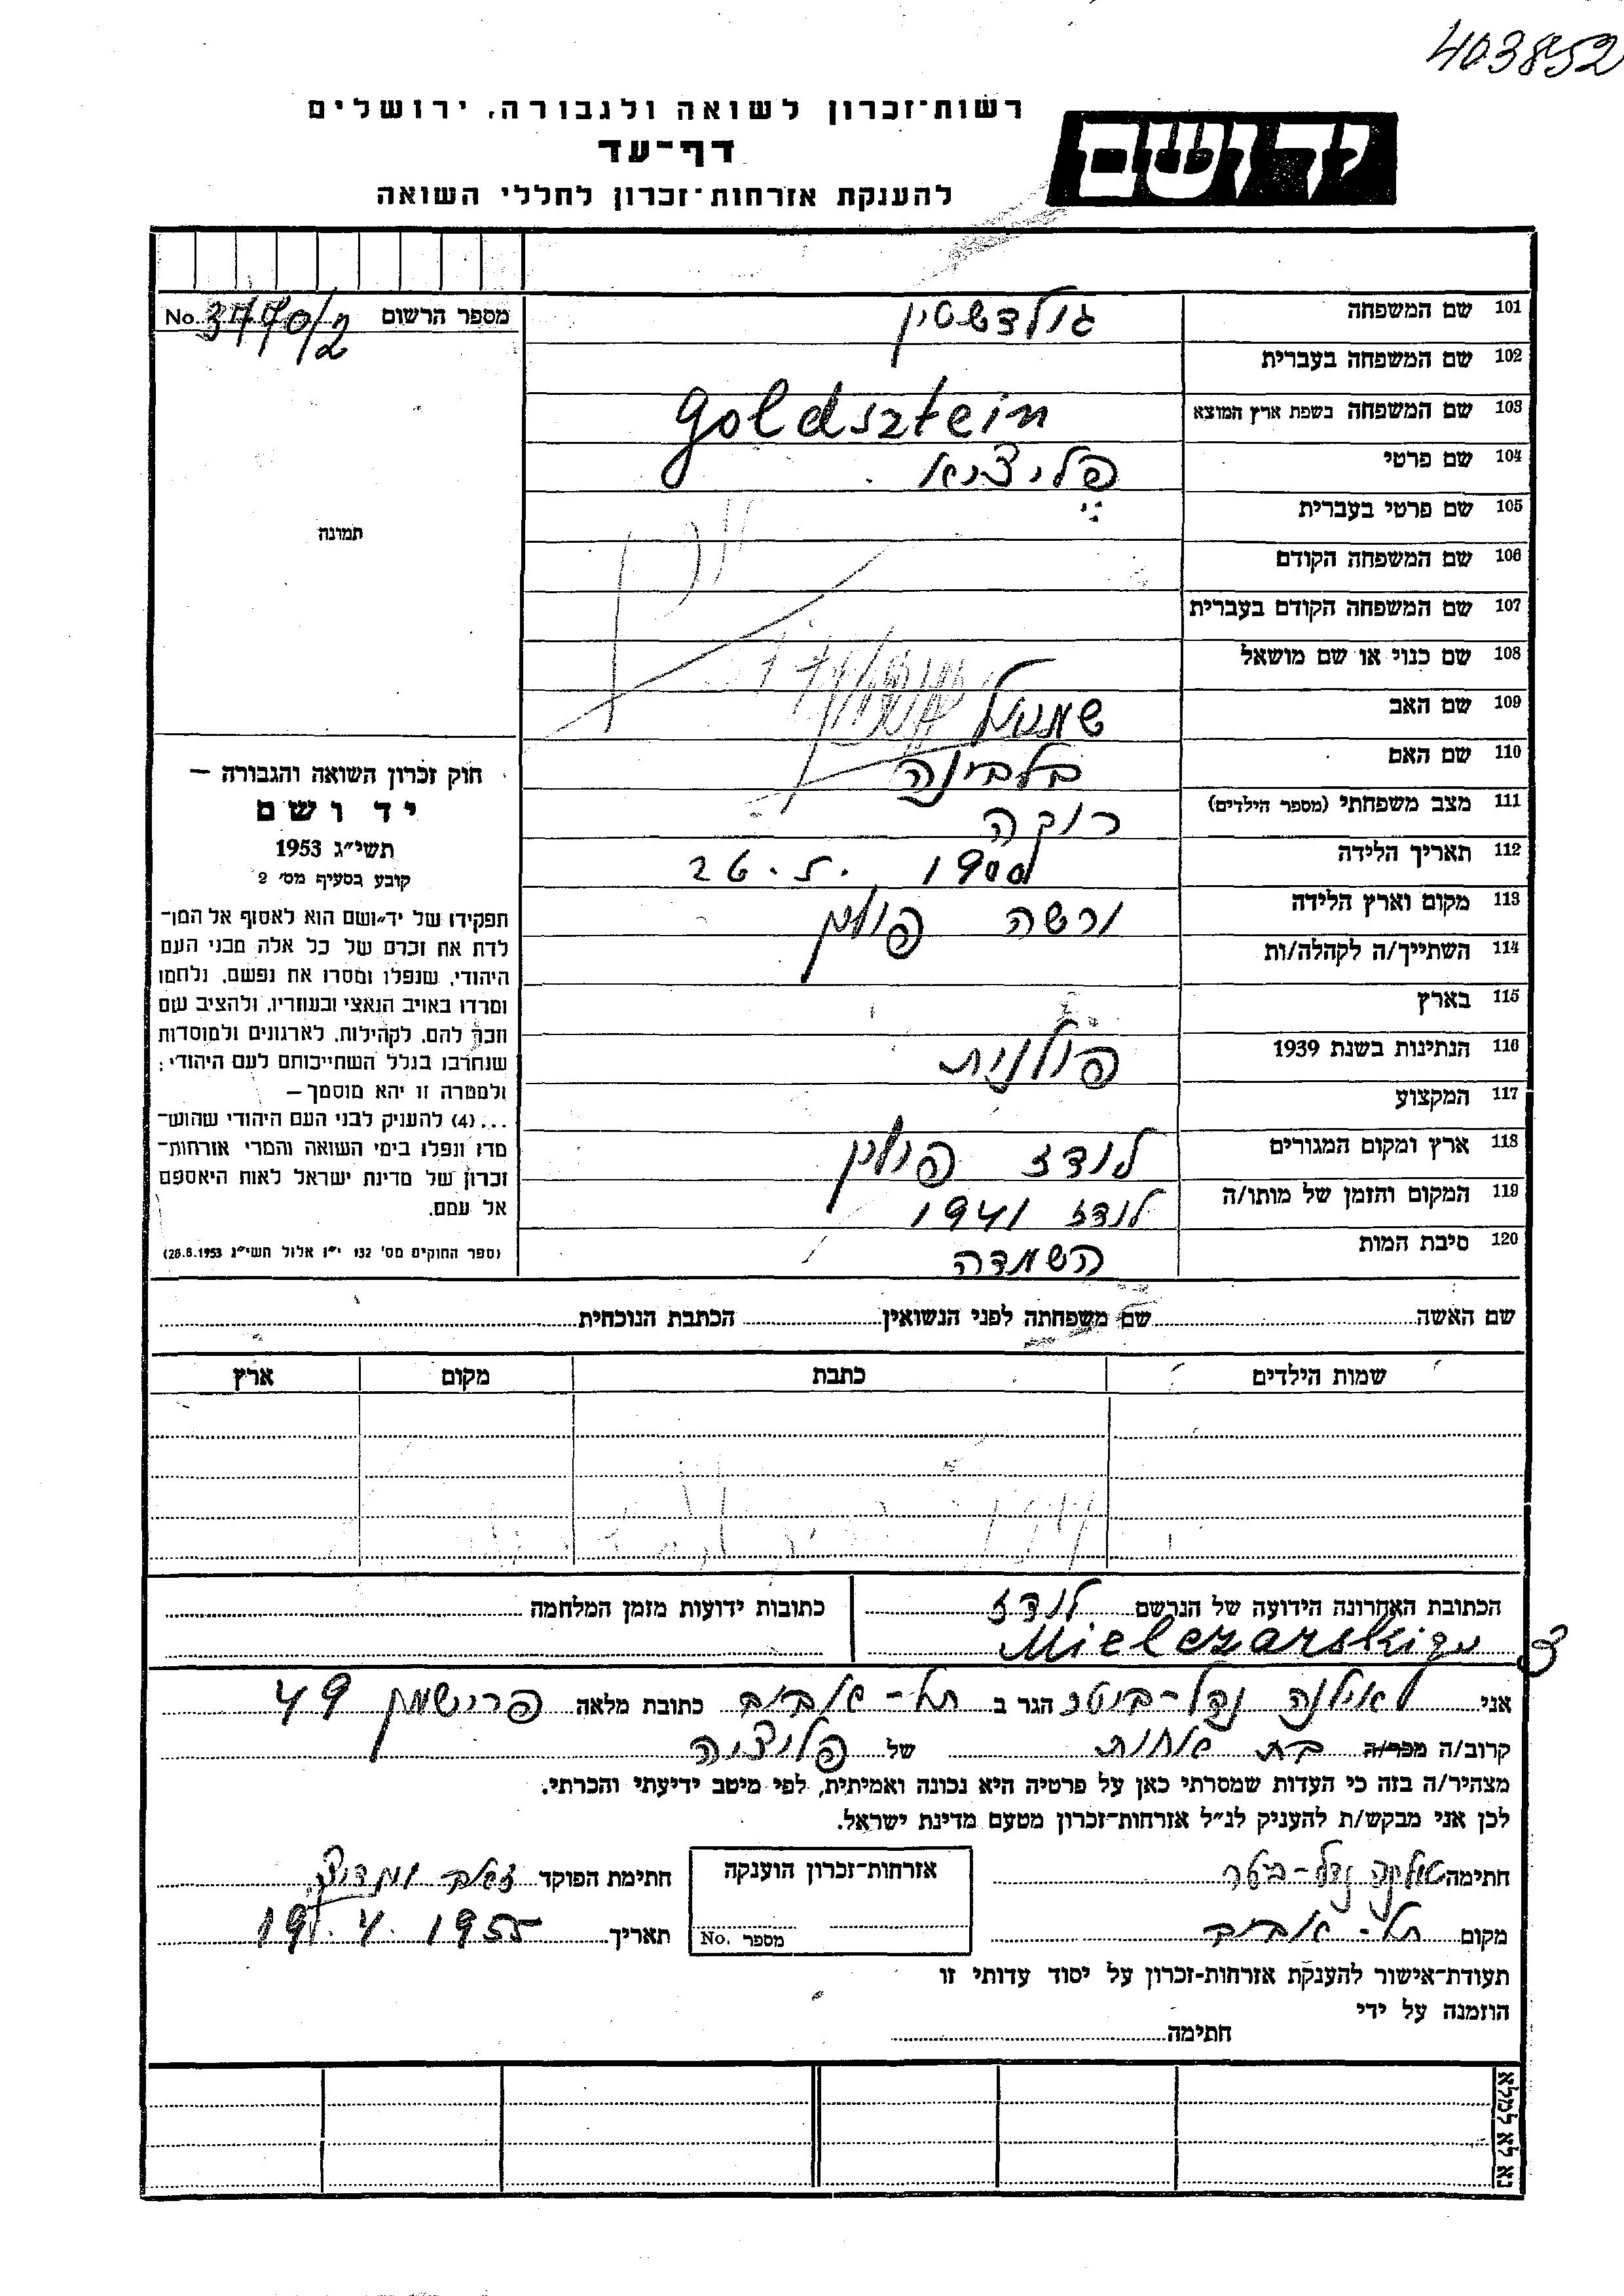 403852
יד ושם
רשות־זכרון לשואה ולגבורה, ירושלים
דף־עד
להענקת אזרחות־זכרון לחללי השואה
101 שם המשפחה גולדשטין
מספר הרשום No. 3770/2
102 שם המשפחה בעברית
103 שם המשפחה בשפת ארץ המוצא Goldsztein
104 שם פרטי פליציא
105 שם פרטי בעברית
106 שם המשפחה הקודם
107 שם המשפחה הקודם בעברית
108 שם כנוי או שם מושאל
109 שם האב שמואל
110 שם האם בלבינה
111 מצב משפחתי (מספר הילדים) רוקה
112 תאריך הלידה 26. 5. 1900
113 מקום וארץ הלידה ורשה פולין
114 השתייך/ה לקהלה/ות
115 בארץ
116 הנתינות בשנת 1939 פולנית
117 המקצוע
118 ארץ ומקום המגורים לודז פולין
119 המקום והזמן של מותו/ה לודז 1941
120 סיבת המות השמדה
תמונה
חוק זכרון השואה והגבורה –
יד ושם
תשי״ג 1953
קובע בסעיף מס׳ 2
תפקידו של יד־ושם הוא לאסוף אל המו־
לדת את זכרם של כל אלה מבני העם
היהודי, שנפלו ומסרו את נפשם, נלחמו
ומרדו באויב הנאצי ובעוזריו, ולהציב שם
וזכר להם, לקהילות, לארגונים ולמוסדות
שנחרבו בגלל השתייכותם לעם היהודי;
ולמטרה זו יהא מוסמך –
...(4) להעניק לבני העם היהודי שהוש־
מדו ונפלו בימי השואה והמרי אזרחות־
זכרון של מדינת ישראל לאות היאספם
אל עמם.
(ספר החוקים מס׳ 132 י״ז אלול תשי״ג 28.8.1953)
שם האשה שם משפחתה לפני הנשואין הכתבת הנוכחית
שמות הילדים כתבת מקום ארץ
הכתובת האחרונה הידועה של הנרשם לודז
Mielczarskiego
כתובות ידועות מזמן המלחמה
אני אילנה נדל־ביטר הגר ב תל־אביב כתובת מלאה פרישמן 49
קרוב/ה מכר/ה בת אחות של פליציה
מצהיר/ה בזה כי העדות שמסרתי כאן על פרטיה היא נכונה ואמיתית, לפי מיטב ידיעתי והכרתי.
לכן אני מבקש/ת להעניק לנ״ל אזרחות־זכרון מטעם מדינת ישראל.
חתימה אילנה נדל־ביטר
אזרחות־זכרון הוענקה
חתימת הפוקד זאב
מקום תל־אביב
מספר No.
תאריך 19. 4. 1955
תעודת־אישור להענקת אזרחות־זכרון על יסוד עדותי זו
הוזמנה על ידי
חתימה
נא לא למלא